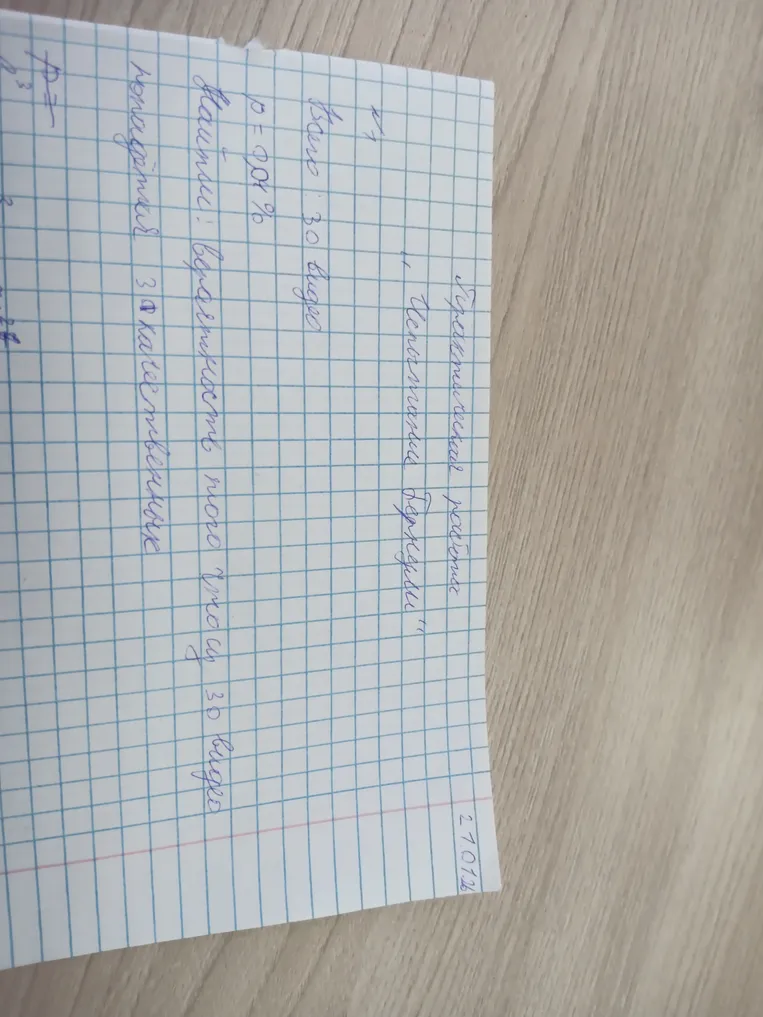 21 01 26
Практическая работа
"Испытания Бернулли"
№1
Всего: 30 видео
p = 0,04 %
Найти: вероятность того что из 30 видео
попадётся 3 качественных
p =